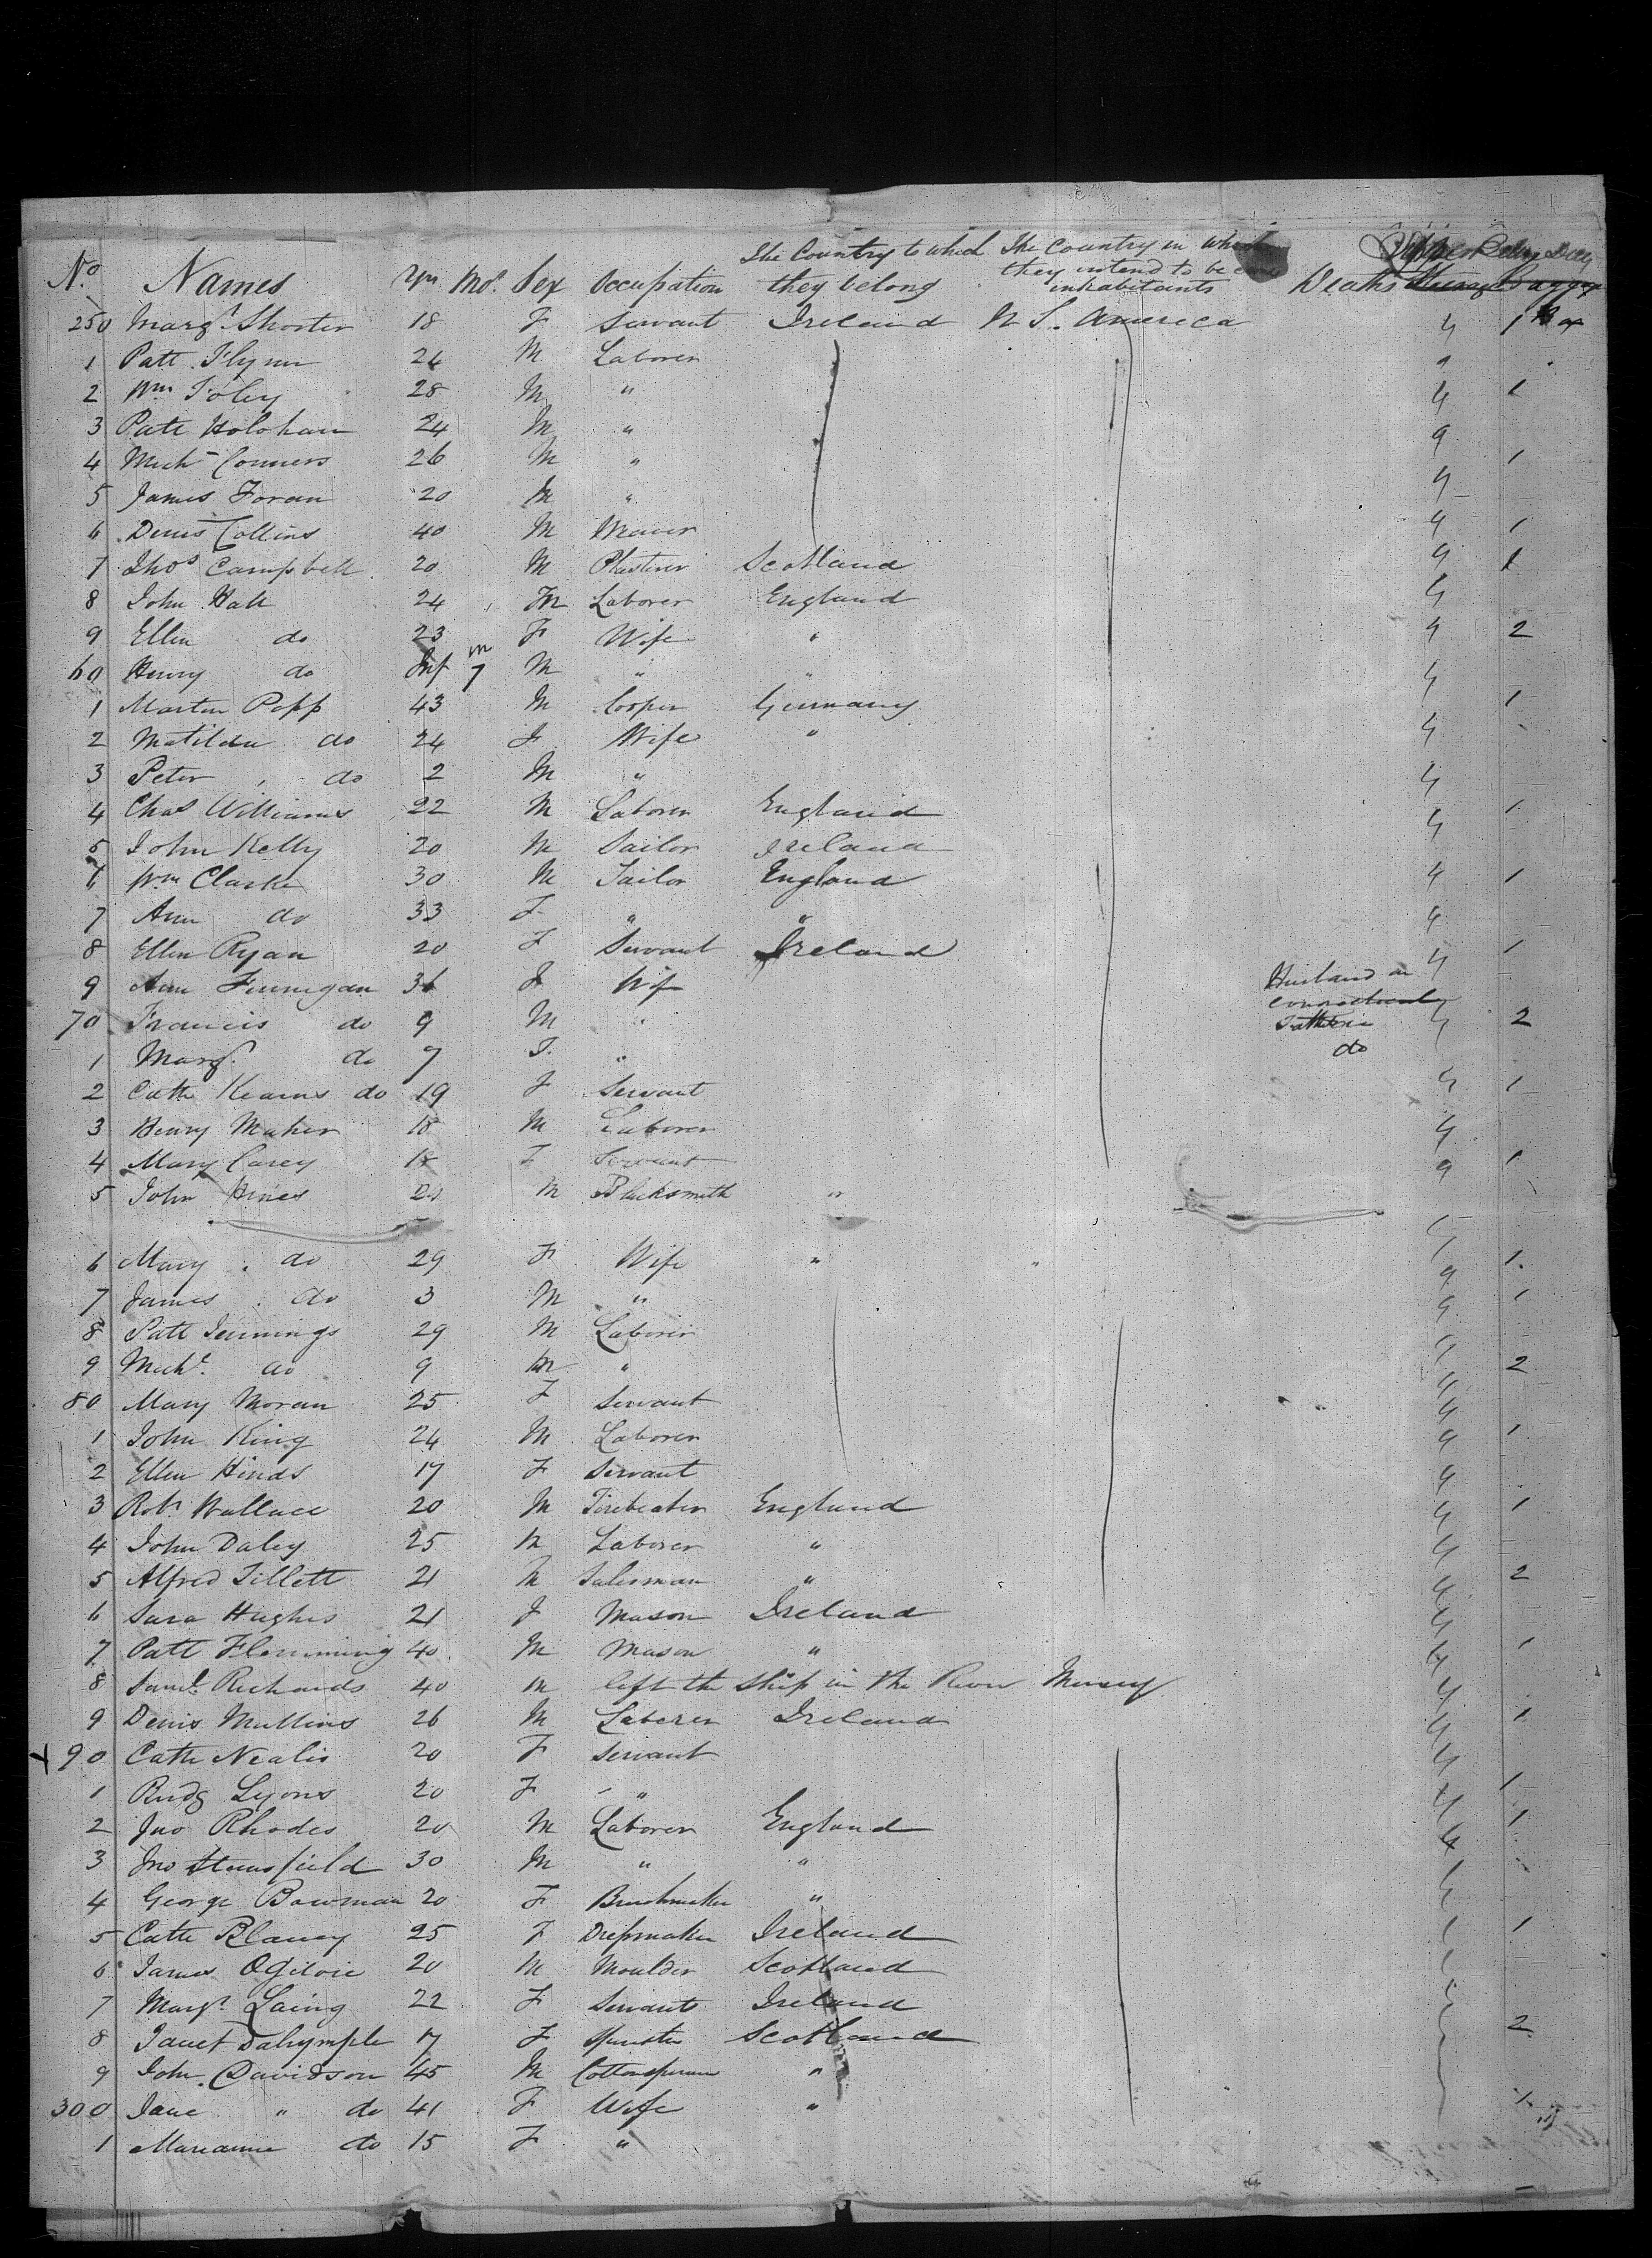 No. Names Yrs Mos. Sex Occupation The Country to which they belong The Country in which they intend to be inhabitants Deaths
250 Margt. Shorter 18 F Servant Ireland N S. America 4 1 Box
1 Patt. Flynn 24 M Laborer
2 Wm Foley 28 M " 4 1
3 Patt Holohan 24 M "
4 Michl Conners 26 M " 1
5 James Foran 20 M " 4
6 Denis Collins 40 M Weaver 4 1
7 Thos Campbell 20 M Plasterer Scotland 1
8 John Hall 24 M Laborer England 4
9 Ellen do 23 F Wife " 4 2
60 Henry do Inf 7 m M " 4
1 Martin Popp 43 M Cooper Germany 1
2 Matilda do 24 F Wife " 4
3 Peter do 2 M " 4
4 Chas Williams 22 M Laborer England 1
5 John Kelly 20 M Sailor Ireland 4
6 Wm Clarke 30 M Tailor England 4 1
7 Ann do 33 F " " 4
8 Ellen Ryan 20 F Servant Ireland 4 1
9 Ann Finnigan 36 F Wife Husband in
70 Francis do 9 M " 4 2
1 Margt. do 7 F. " do
2 Cath Kearns do 19 F Servant 4 1
3 Henry Maher 18 M Laborer 4
4 Mary Carey 18 F Servant 1
5 John Hines M Blacksmith "
6 Mary do 29 F Wife " " 1
7 James do 3 M " 1
8 Patt Jennings 29 M Laborer
9 Michl. do 9 M " 2
80 Mary Moran 25 F Servant
1 John King 24 M Laborer 1
2 Ellen Hinds 17 F Servant
3 Robt. Wallace 20 M Firebeater England 1
4 John Daley 25 M Laborer "
5 Alfred Tillett 21 M Salesman " 2
6 Sara Hughes 21 F Mason Ireland
7 Patt Flemming 40 M Mason " 1
8 Saml. Richards 40 M left the Ship in the River Mersey
9 Denis Mullins 26 M Laborer Ireland 1
X 90 Cath Nealis 20 F Servant
1 Bridg Lyons 20 F " 1
2 Jno Rhodes 20 M Laborer England 1
3 Jno Stansfield 30 M " "
4 George Bowman 20 F Brushmaker "
5 Cath Blaney 25 F Dressmaker Ireland 1
6 James Ogilvie 20 M Moulder Scotland
7 Margt. Laing 22 F Servant Ireland
8 Janet Dalrymple 17 F Spinster Scotland 2
9 John Davidson 45 M Cottonspinner "
300 Jane " do 41 F Wife " 1
1 Marianne do 15 F "